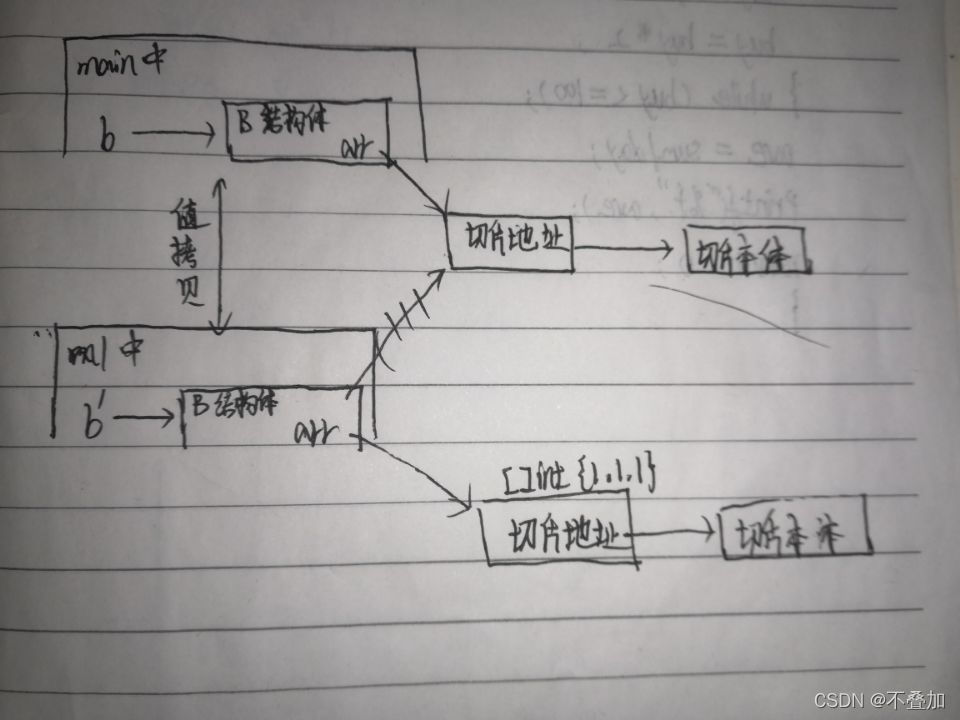 main中
b
B结构体
arr
值拷贝
切片地址
切片本体
b'
B结构体
arr
[]int {1,1,1}
切片地址
切片本体
CSDN @不叠加